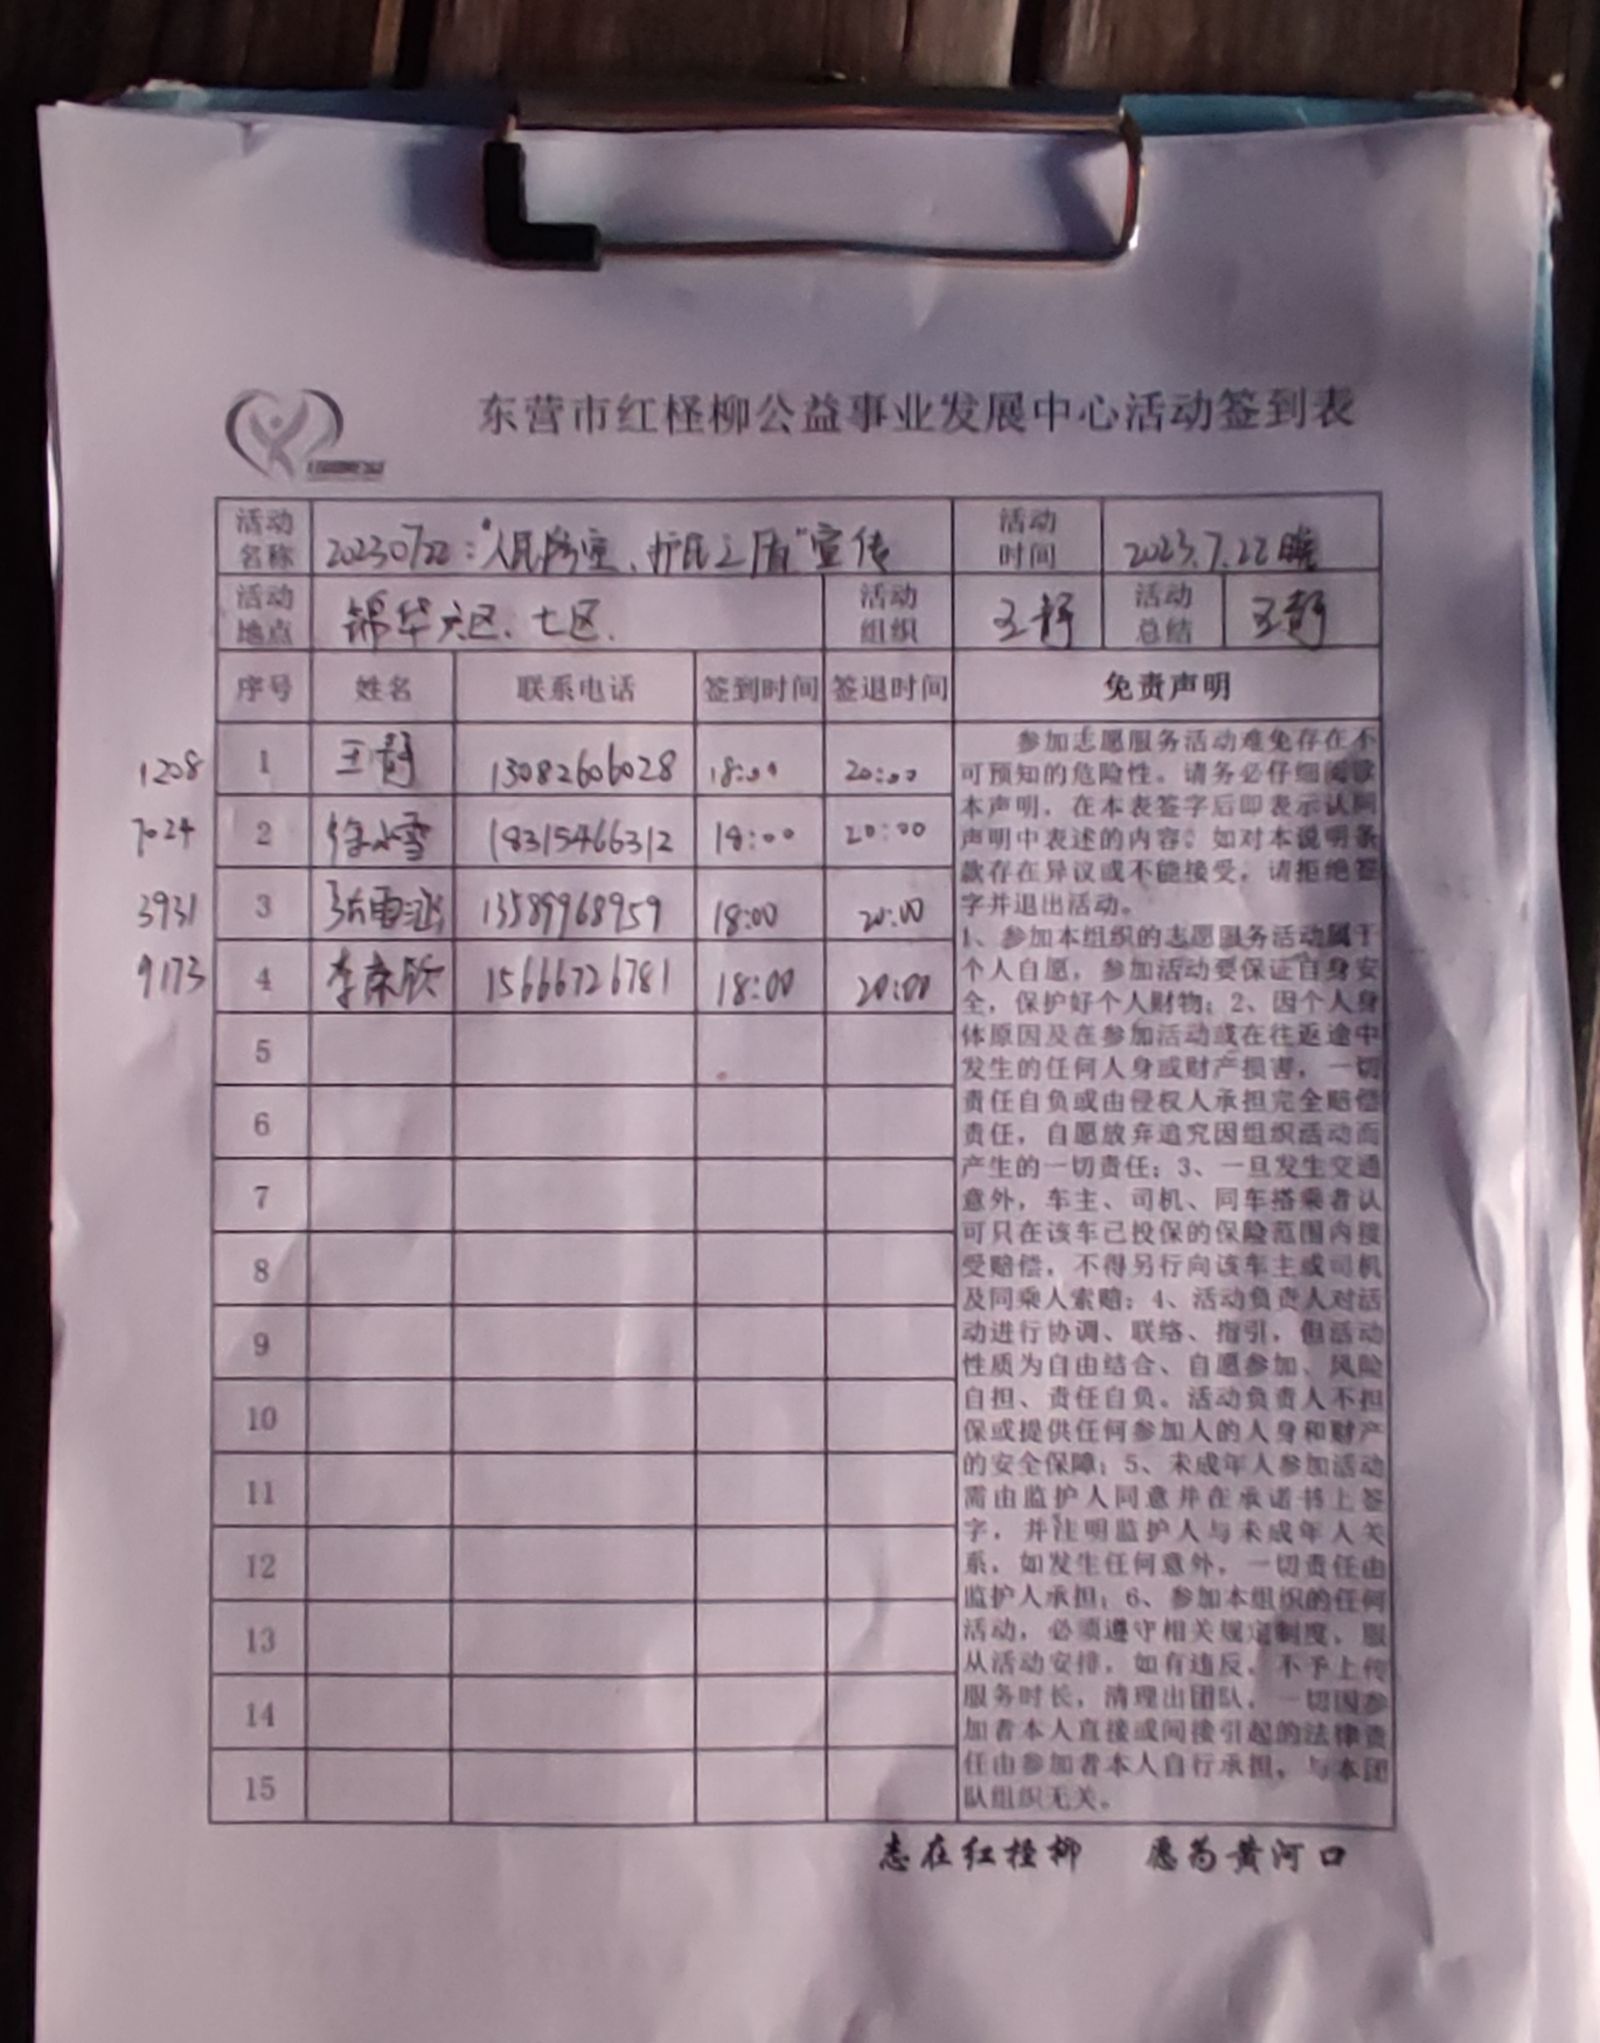 东营市红柽柳公益事业发展中心活动签到表
活动名称 20230722:“人民防空、护民之盾”宣传 活动时间 2023.7.22晚
活动地点 锦华六区、七区. 活动组织 王静 活动总结 王静
序号 姓名 联系电话 签到时间 签退时间 免责声明
1208 1 王静 13082606028 18:00 20:00
7024 2 徐小雪 18315466312 18:00 20:00
3931 3 13589968959 18:00 20:00
9173 4 李 15666726781 18:00 20:00
5
6
7
8
9
10
11
12
13
14
15
参加志愿服务活动难免存在不
可预知的危险性。请务必仔细阅读
本声明，在本表签字后即表示认同
声明中表述的内容。如对本说明条
款存在异议或不能接受，请拒绝签
字并退出活动。
1、参加本组织的志愿服务活动属于
个人自愿，参加活动要保证自身安
全，保护好个人财物；2、因个人身
体原因及在参加活动或在往返途中
发生的任何人身或财产损害，一切
责任自负或由侵权人承担完全赔偿
责任，自愿放弃追究因组织活动而
产生的一切责任；3、一旦发生交通
意外，车主、司机、同车搭乘者认
可只在该车已投保的保险范围内接
受赔偿，不得另行向该车主或司机
及同乘人索赔；4、活动负责人对活
动进行协调、联络、指引，但活动
性质为自由结合、自愿参加、风险
自担、责任自负。活动负责人不担
保或提供任何参加人的人身和财产
的安全保障；5、未成年人参加活动
需由监护人同意并在承诺书上签
字，并注明监护人与未成年人关
系，如发生任何意外，一切责任由
监护人承担；6、参加本组织的任何
活动，必须遵守相关规定制度，服
从活动安排，如有违反，不予上传
服务时长，清理出团队，一切因参
加者本人直接或间接引起的法律责
任由参加者本人自行承担，与本团
队组织无关。
志在红柽柳 愿为黄河口